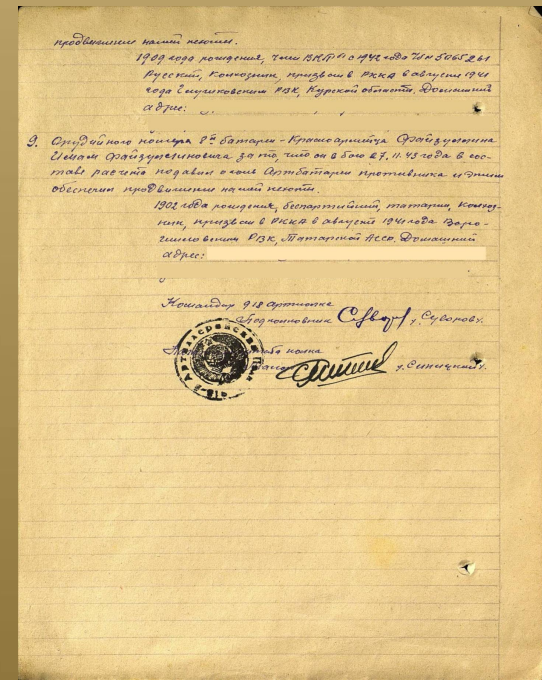 продвижение нашей пехоты.
1909 года рождения, член ВКП"б" с 1942 года
Русский, колхозник, призван в РККА в августе 1941
года Глушковским РВК, Курской области. Домашний
адрес:
9. Орудийного номера 8й батареи - Красноармейца Файзуллина
Имам Файзуллиновича за то, что он в бою 27.11.43 года в сос-
таве расчета подавил огонь Артбатареи противника и этим
обеспечил продвижение нашей пехоты.
1902 года рождения, беспартийный, татарин, колхоз-
ник, призван в РККА в августе 1941 года Воро-
шиловским РВК, Татарской АССР. Домашний
адрес:
Командир 918 артполка
Подполковник /Суворов/.
штаба полка
/Синицкий/.
918-й АРТИЛЛЕРИЙСКИЙ ПОЛК